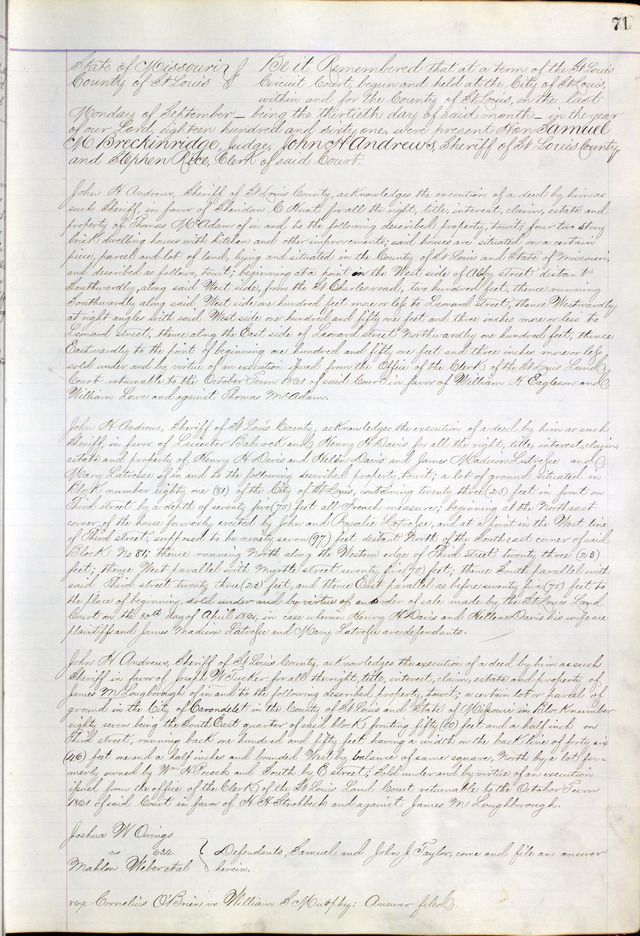 71
State of Missouri } Be it Remembered that at a term of the St Louis
County of St Louis } Circuit Court, begun and held at the City of St Louis,
within and for the County of St Louis, on the last
Monday of September – being the thirtieth day of said month – in the year
of our Lord, eighteen hundred and sixty one, were present Hon Samuel
M Breckinridge, Judge, John H Andrews, Sheriff of St Louis County
and Stephen Rice, Clerk of said Court.
John H Andrews, Sheriff of St Louis County, acknowledges the execution of a deed by him as
such Sheriff in favor of Sheridan C Hunt for all the right, title, interest, claim, estate and
property of Thomas McAdam of in and to the following described property, towit; four two story
brick dwelling houses with kitchen and other improvements; said houses are situated on a certain
piece, parcel and lot of land, lying and situated in the County of St Louis and State of Missouri
and described as follows, towit; beginning at a point on the West side of street distant
Southwardly, along said West side, from the St Charles road, two hundred feet, thence running
Southwardly along said West side one hundred feet more or less to Leonard Street, thence Westwardly
at right angles with said West side one hundred and fifty one feet and three inches more or less to
Leonard street, thence along the East side of Leonard street Northwardly one hundred feet, thence
Eastwardly to the point of beginning one hundred and fifty one feet and three inches more or less
sold under and by virtue of an execution issued from the Office of the Clerk of the St Louis Land
Court returnable to the October Term 1861 of said Court in favor of William H Eagleson and
William Love and against Thomas McAdam.
John H Andrews, Sheriff of St Louis County, acknowledges the execution of a deed by him as such
Sheriff, in favor of Leicester Babcock and Henry H Davis for all the right, title, interest, claim,
estate and property of Henry H Davis and Hellen Davis and James Madison Latresse and
Mary Latresse of in and to the following described property, towit; a lot of ground situated in
Block number eighty one (81) of the City of St Louis, containing twenty three (23) feet in front on
Third street by a depth of seventy five (75) feet all French measure; beginning at the Northeast
corner of the house formerly erected by John and Rosalie Latresse, and at a point in the West line
of Third Street, supposed to be ninety seven (97) feet distant North of the Southeast corner of said
Block No 81; thence running North along the Western edge of Third street twenty three (23)
feet; thence West parallel with Myrtle street seventy five (75) feet; thence South parallel with
said Third street twenty three (23) feet, and thence East parallel as before seventy five (75) feet to
the place of beginning, sold under and by virtue of an order of sale made by the St Louis Land
Court on the 30th day of April 1861, in case wherein Henry H Davis and Hellen Davis his wife are
plaintiffs and James Madison Latresse and Mary Latresse are defendants.
John H Andrews, Sheriff of St Louis County, acknowledges the execution of a deed by him as such
Sheriff in favor of Joseph W Tucker for all the right, title, interest, claim, estate and property of
James M Loughborough of in and to the following described property, towit; a certain lot or parcel of
ground in the City of Carondelet in the County of St Louis and State of Missouri in Block number
eighty seven being the South East quarter of said block fronting fifty (50) feet and a half inch on
third street, running back one hundred and fifty feet having a width on the back line of forty six
(46) feet one and a half inches and bounded West by balance of same square, North by a lot for-
merly owned by Wm H and South by E street; Sold under and by virtue of an execution
issued from the office of the Clerk of the St Louis Land Court returnable to the October Term
1861 of said Court in favor of H H Strohbeck and against James M Loughborough.
Joshua W Owings
vs 632 } Defendants, Samuel and John J Taylor, come and file an answer
Mahlon Weber et al } herein.
Cornelius O'Brien vs William S Murphy: Answer filed.